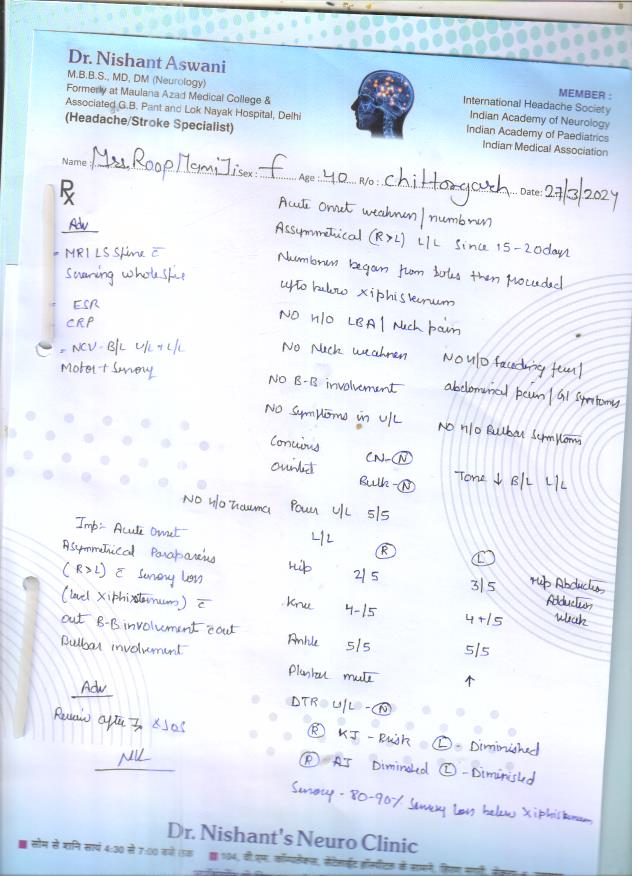 Dr. Nishant Aswani
M.B.B.S., MD, DM (Neurology)
Formerly at Maulana Azad Medical College &
Associated G.B. Pant and Lok Nayak Hospital, Delhi
(Headache/Stroke Specialist)
MEMBER :
International Headache Society
Indian Academy of Neurology
Indian Academy of Paediatrics
Indian Medical Association
Name : Mrs. Roop Sex : F Age : 40 R/o : Chittorgarh Date: 27/3/2024
Rx
Adv
- MRI LS Spine c̄
Screening whole spine
- ESR
CRP
- NCV - B/L U/L + L/L
Motor + Sensory
Acute Onset weakness / numbness
Assymmetrical (R>L) L/L Since 15-20 days
Numbness began from Soles then proceeded
upto below Xiphisternum
NO H/O LBA / Neck pain
No Neck weakness
NO H/O preceding fever /
abdominal pain / GI Symptoms
NO B-B involvement
NO Symptoms in U/L
NO H/O Bulbar Symptoms
Concious
CN - (N)
Bulk - (N)
Tone ↓ B/L L/L
NO H/O Trauma
Power U/L 5/5
L/L
(R) (L)
Hip 2/5 3/5
Hip Abduction
Adduction
Weak
Knee 4-/5 4+/5
Ankle 5/5 5/5
Plantar mute ↑
DTR U/L - (N)
(R) KJ - Brisk (L) - Diminished
(R) AJ Diminshed (L) - Diminished
Sensory - 80-90% Sensory loss below Xiphisternum
Imp:- Acute Onset
Asymmetrical Paraparesis
(R>L) c̄ Sensory Loss
(level Xiphisternum) c̄
out B-B involvement c̄ out
Bulbar involvement
Adv
Review after
Dr. Nishant's Neuro Clinic
सोम से शनि सायं 4:30 से 7:00 बजे तक
104, वी.एम. कॉम्पलेक्स, सेटेलाईट हॉस्पीटल के सामने, हिरण मगरी,